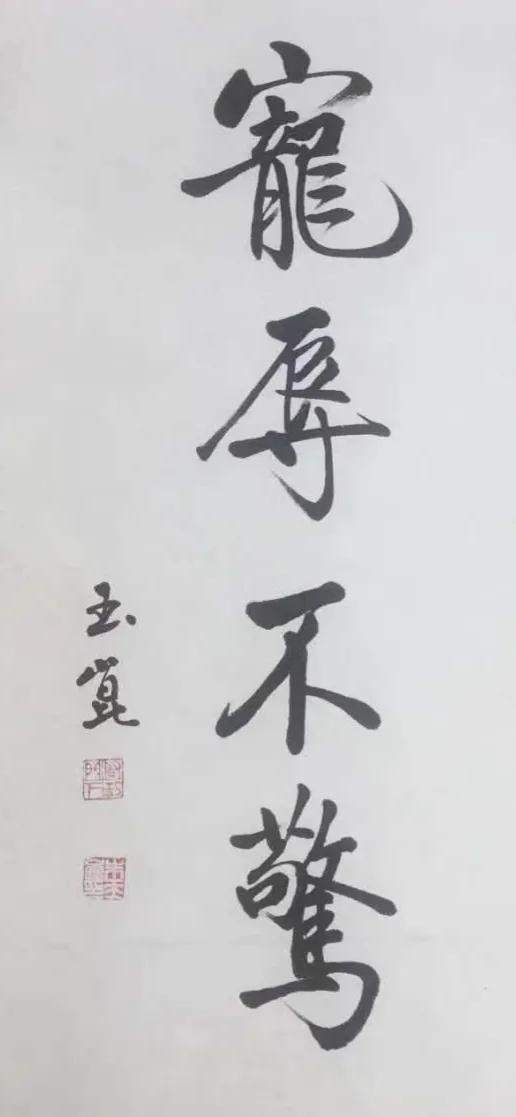 寵辱不驚
玉崑